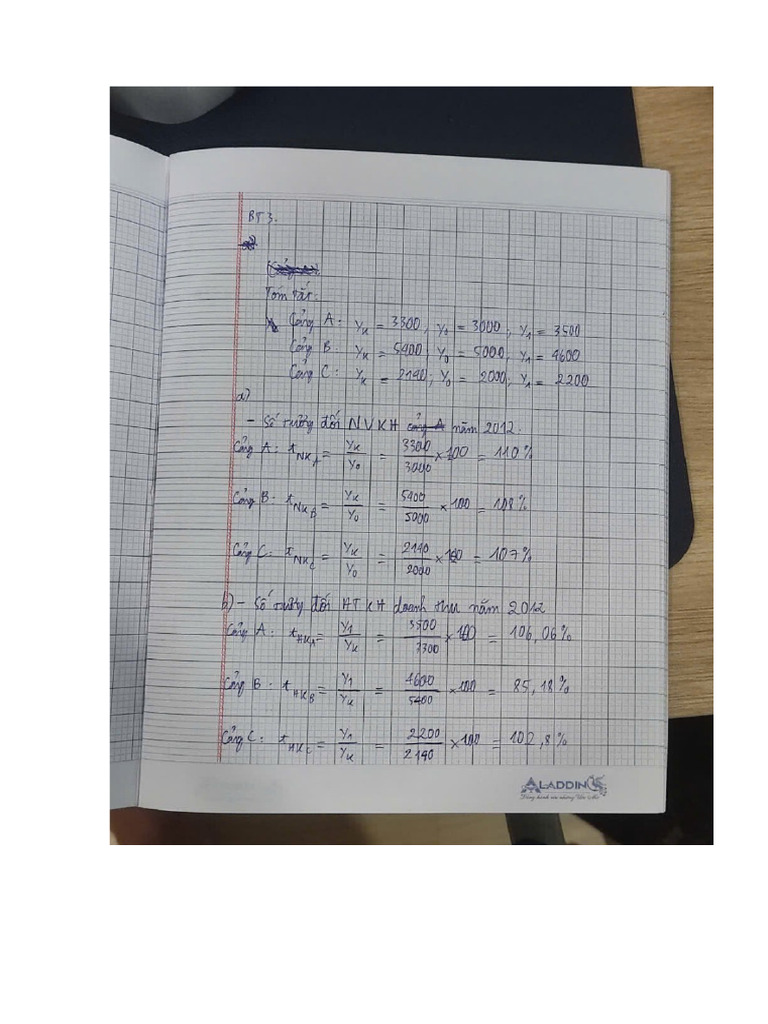 BT 3.
Tóm tắt:
Cảng A: Yk = 3300, y0 = 3000, Y1 = 3500
Cảng B: Yk = 5400, Y0 = 5000, Y1 = 4600
Cảng C: Yk = 2140, Y0 = 2000, Y1 = 2200
a)
- Số tương đối NVKH cảng A năm 2012.
Cảng A: tNKA = Yk/Y0 = 3300/3000 × 100 = 110%
Cảng B: tNKB = Yk/Y0 = 5400/5000 × 100 = 108%
Cảng C: tNKC = Yk/Y0 = 2140/2000 × 100 = 107%
b) - Số tương đối HTKH doanh thu năm 2012
Cảng A: tHKA = Y1/Yk = 3500/3300 × 100 = 106,06%
Cảng B: tHKB = Y1/Yk = 4600/5400 × 100 = 85,18%
Cảng C: tHKC = Y1/Yk = 2200/2140 × 100 = 102,8%
ALADDIN